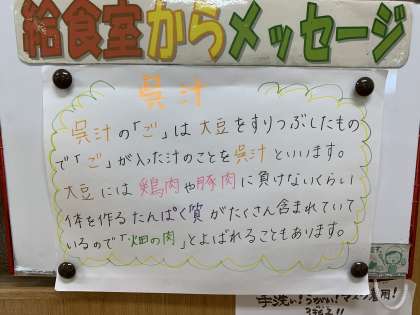 給食室からメッセージ
呉汁
呉汁の「ご」は大豆をすりつぶしたもの
で「ご」が入った汁のことを呉汁といいます。
大豆には鶏肉や豚肉に負けないくらい
体を作るたんぱく質がたくさん含まれていて
いるので「畑の肉」とよばれることもあります。
手洗い!うがい!マスク着用!